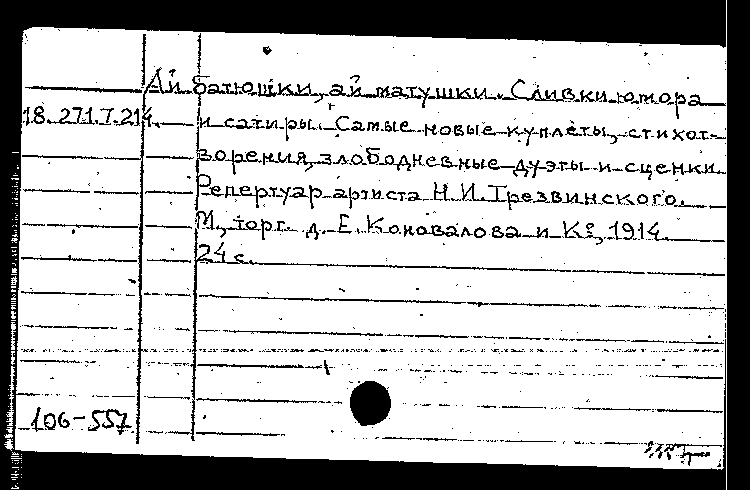 Ай батюшки, ай матушки. Сливки юмора
18.271.7.214.
и сатиры. Самые новые куплеты, стихот-
ворения, злободневные дуэты и сценки.
Репертуар артиста Н.И.Трезвинского.
М., торг. д. Е. Коновалова и К°, 1914.
24 с.
106-557